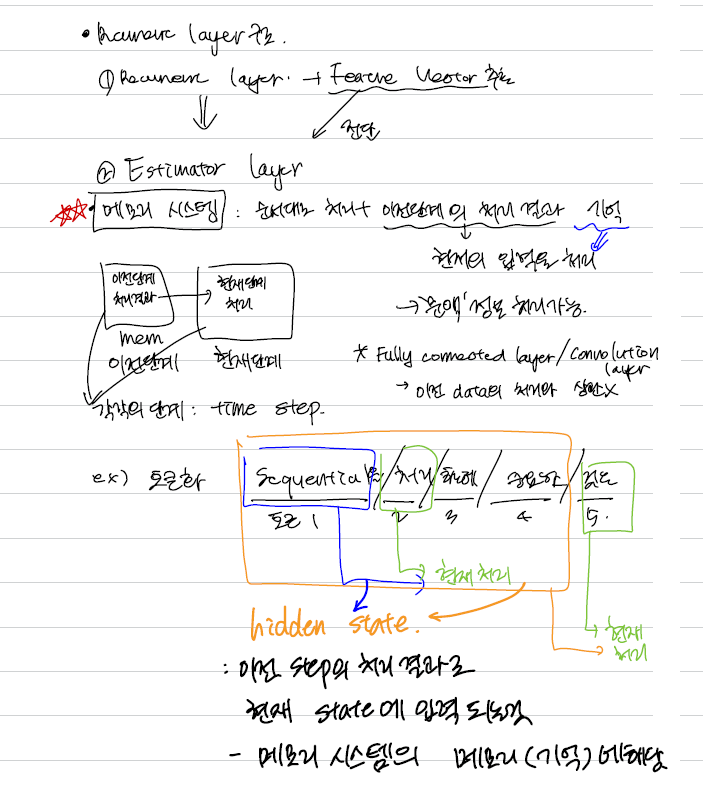 • Recurrent layer 구조.
① Recurrent layer. → Feature Vector 추출
전달
② Estimator layer
• 메모리 시스템 : 순서대로 처리 + 이전단계의 처리 결과 기억
현재의 입력을 처리
→ '문맥' 정보 처리가능.
이전단계 처리결과 → 현재단계 처리
mem
이전단계 현재단계
* Fully connected layer / Convolution layer
→ 이전 data의 처리와 상관X
각각의 단계 : time step.
ex) 토큰화 Sequential / 처리 / / /
토큰 1 2 3 4 5.
현재처리
hidden state.
현재 처리
: 이전 step의 처리 결과로
현재 state에 입력 되는것
- 메모리 시스템의 메모리(기억)에해당